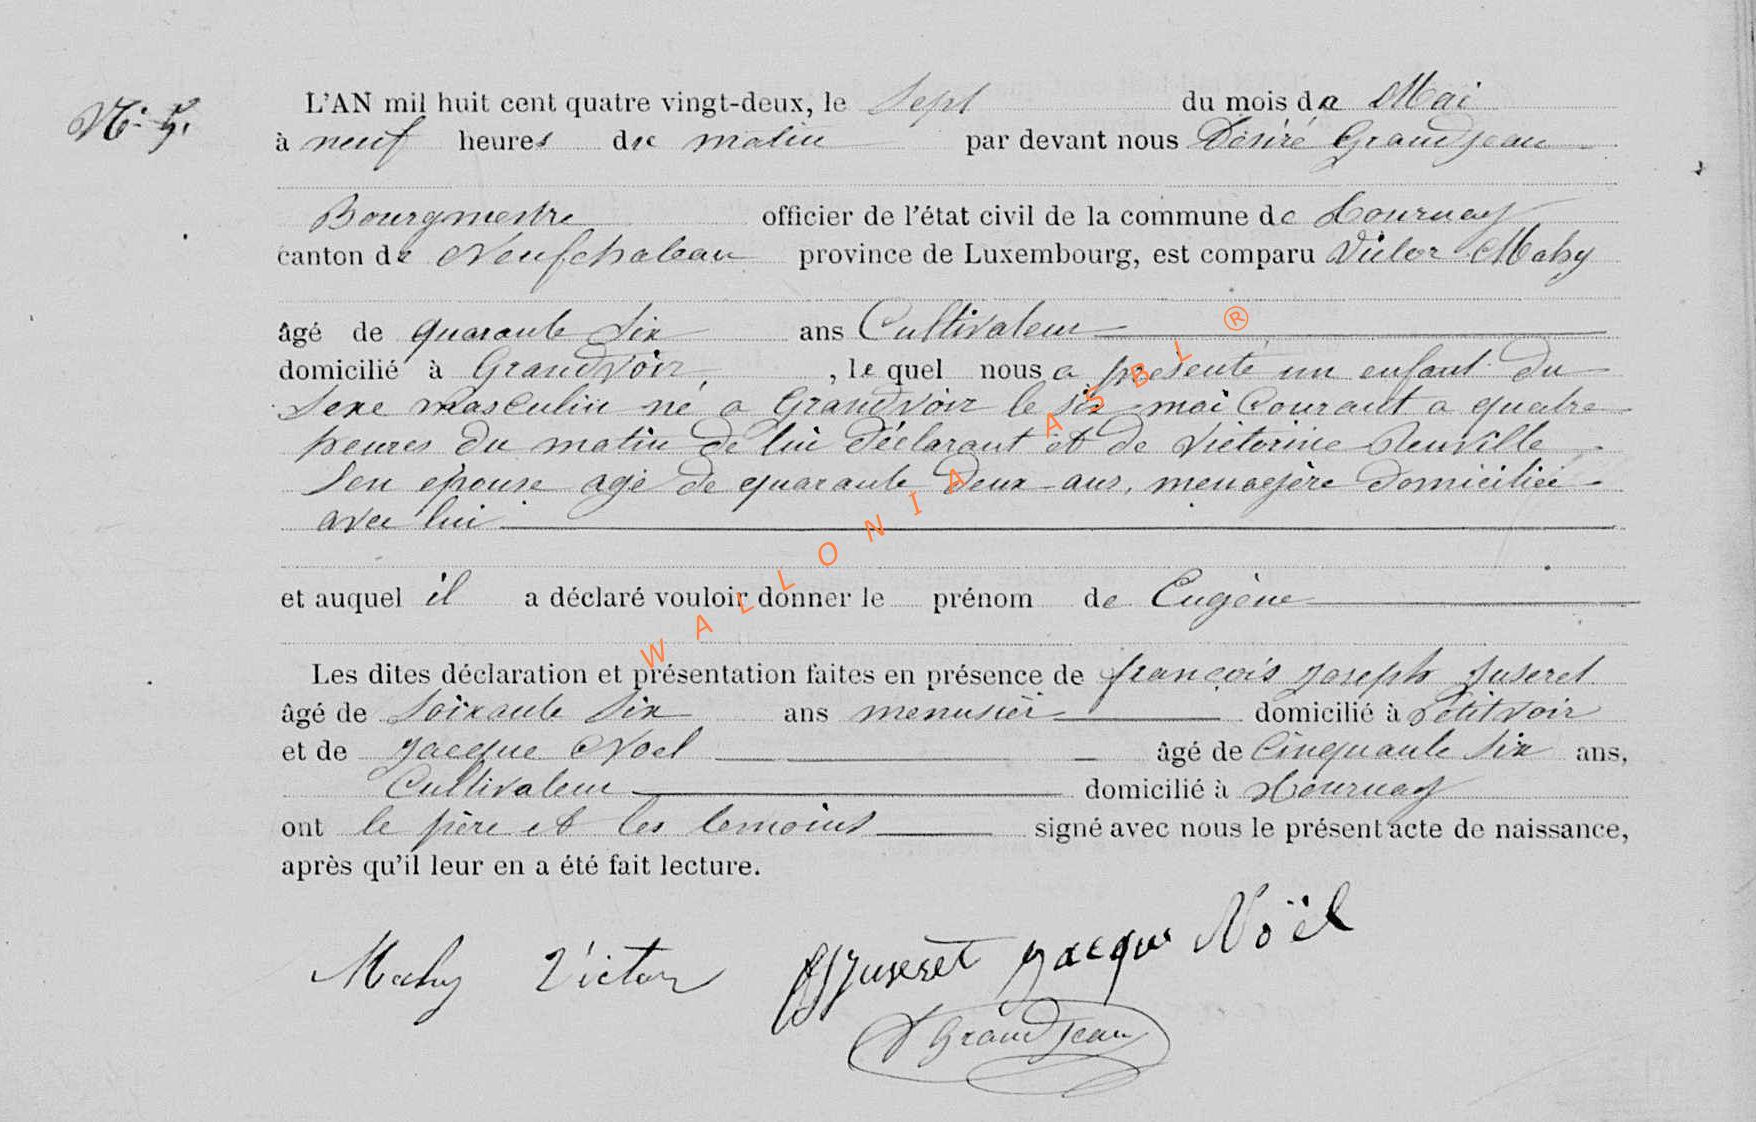 N° 5.
L'AN mil huit cent quatre vingt-deux, le Sept du mois de Mai
à neuf heures du matin par devant nous Désiré Grandjean
Bourgmestre officier de l'état civil de la commune de Tournay
canton de Neufchateau province de Luxembourg, est comparu Victor Mahy
âgé de quarante six ans Cultivateur
domicilié à Grandvoir, , le quel nous a présenté un enfant du
Sexe masculin né a Grandvoir le six mai Courant a quatre
heures du matin de lui déclarant et de Victorine Neuville
Son épouse agé de quarante deux ans, menagère domiciliée
avec lui
et auquel il a déclaré vouloir donner le prénom de Eugène
Les dites déclaration et présentation faites en présence de françois Joseph Juseret
âgé de Soixante Six ans menusier domicilié à Petitvoir
et de Jacque Noel âgé de Cinquante Six ans,
Cultivateur domicilié à Tournay
ont le père et les temoins signé avec nous le présent acte de naissance,
après qu'il leur en a été fait lecture.
Mahy Victor Juseret Jacque Noël
D Grandjean
WALLONIA ASBL ®